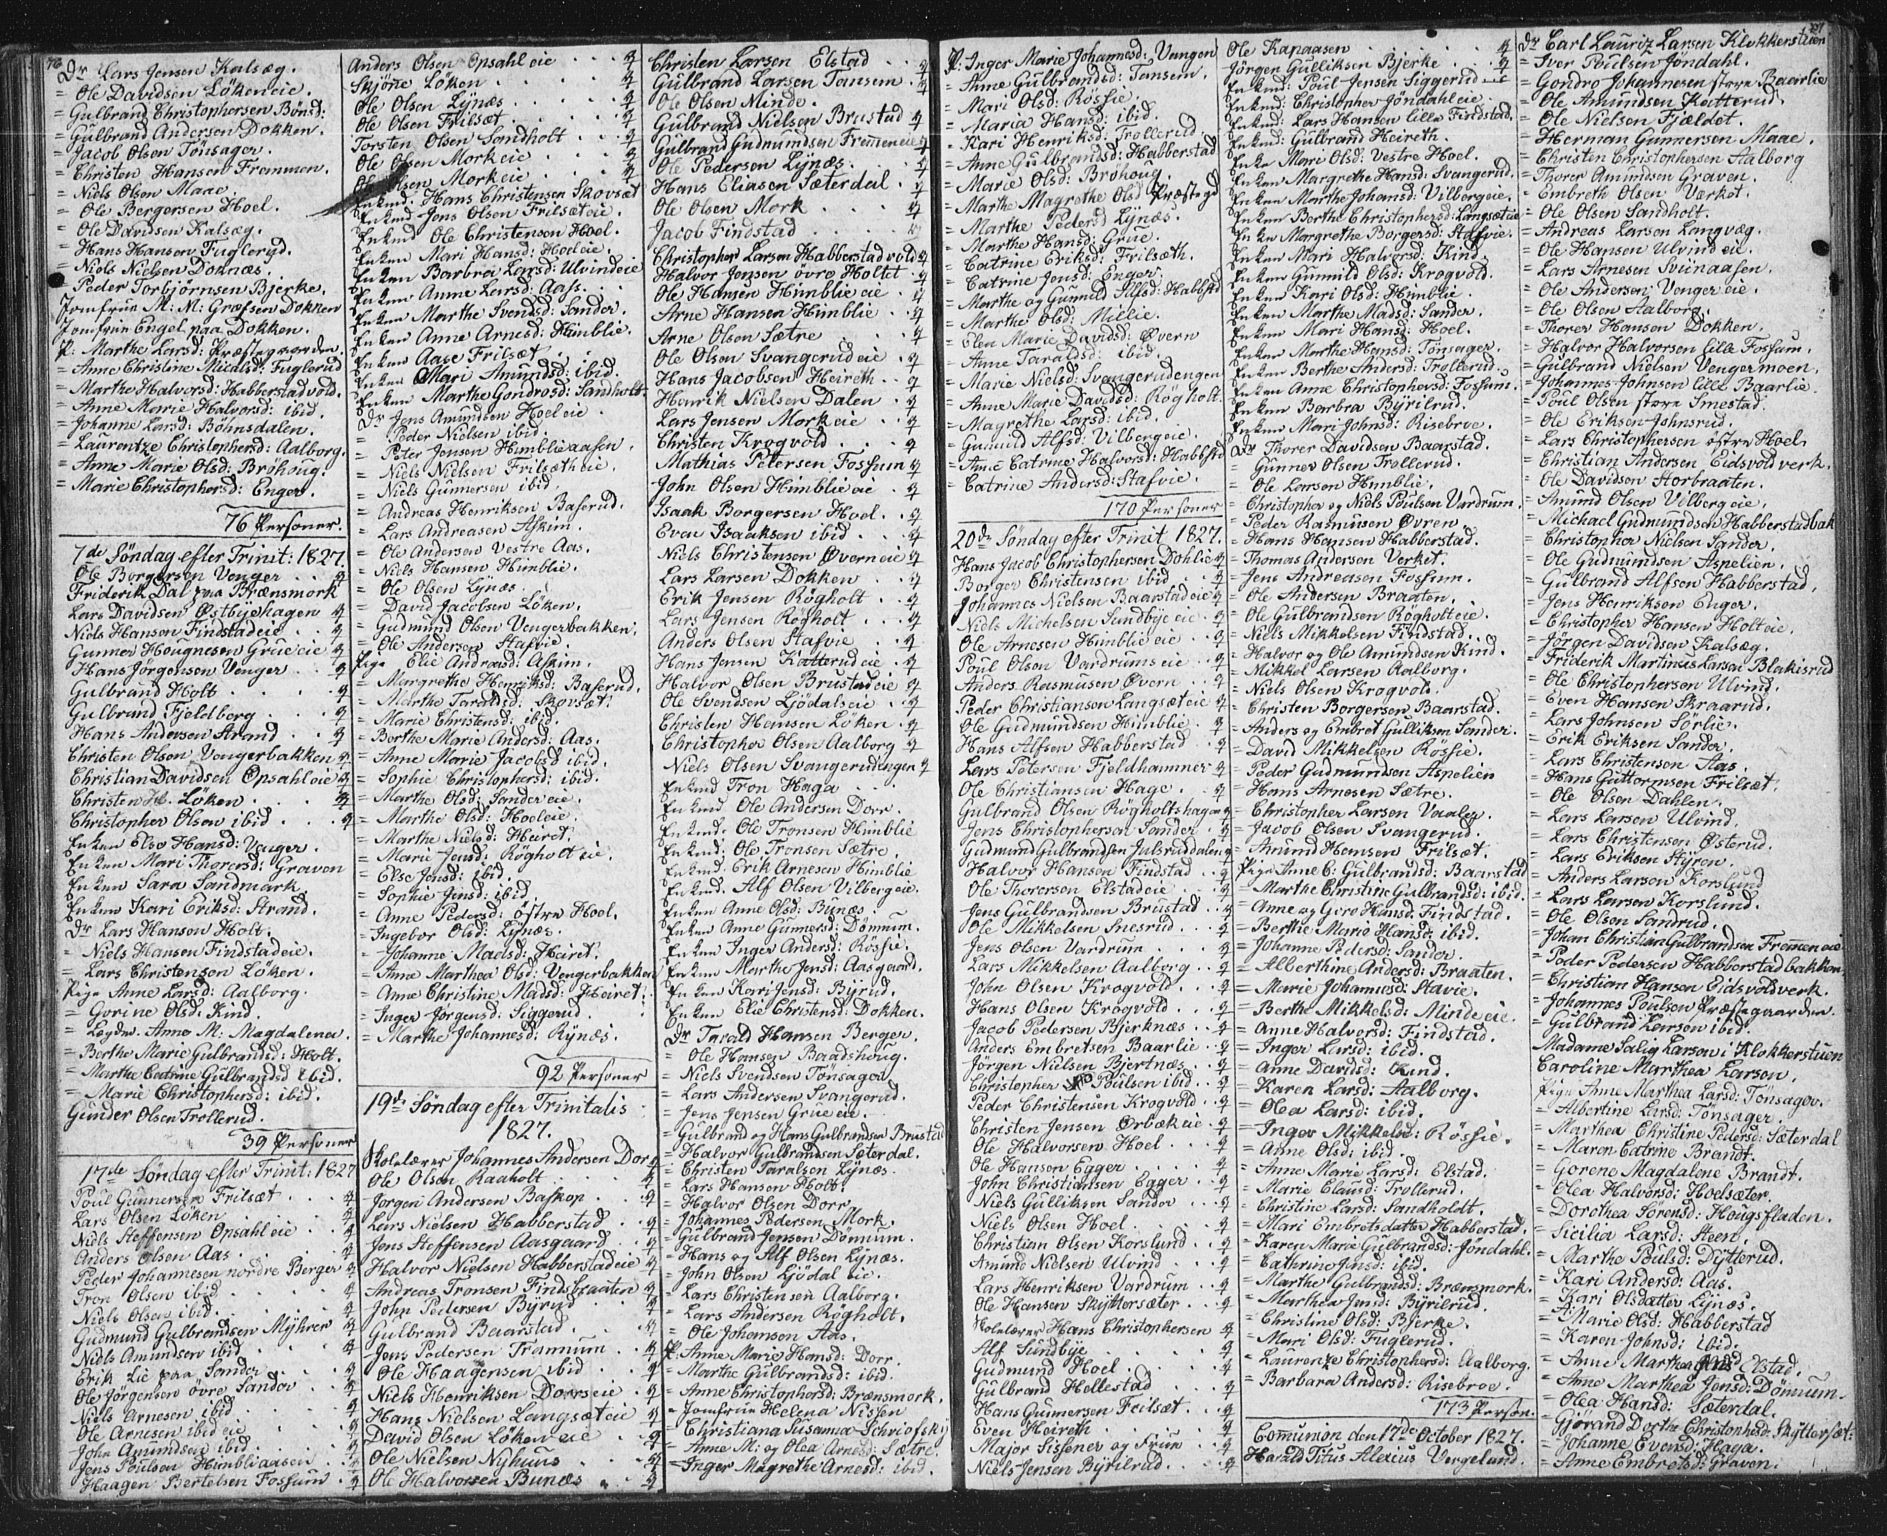 76
Dr Lars Jensen Kalsæg.
= Ole Davidsen Lökeneie.
= Gulbrand Christophersen Bönsd:
= Gulbrand Andersen Dokken.
= Jacob Olsen Tönsager.
= Christen Hansen Fremmen.
= Niels Olsen Maae.
= Ole Bergersen Hoel.
= Ole Davidsen Kalsæg.
= Hans Hansen Fuglerud.
= Niels Nielsen Doknæs.
= Peder Torbjörnsen Bjerke.
Jomfrue M: M: Grafsen Dokken
Jomfrue Engel paa Dokken.
P: Marthe Larsd: Præstegaarden.
= Anne Christine Nicolsd: Fuglerud
= Marthe Halvorsd: Habberstadvold.
= Anne Marie Halvorsd: ibid.
= Johanne Larsd: Böhnsdalen.
= Laurentze Christophersd: Aalborg.
= Anne Marie Olsd: Bröhoug.
= Marie Christophersd: Enger.
76 Personer.
7de Söndag efter Trinit: 1827.
Ole Borgersen Venger
Friderik Dal paa Brænsmork
Lars Davidsen Østbyehagen
Niels Hansen Findstadeie
Gunner Hougnesen Grueeie
Hans Jörgensen Venger
Gulbrand Holt
Gulbrand Fjeldborg
Hans Andersen Strand
Christen Olsen Vengerbakken
Christian Davidsen Opsahleie
Christen H. Löken
Christopher Olsen ibid
Enken Else Hansd: Venger.
Enken Mari Thorersd: Graven
Enken Sara Sandmark.
Enken Kari Eriksd: Strand.
Dr Lars Hansen Holt.
= Niels Hansen Findstadeie.
= Lars Christensen Löken.
Pige Anne Larsd: Aalborg.
= Gorine Olsd: Kind.
= Legdr. Anne M: Magdalena.
= Berthe Marie Gulbrandsd: Holt.
= Marthe Catrine Gulbrandsd ibid.
= Marie Christophersd: ibid.
Gunder Olsen Trollerud.
39 Personer
17de Söndag efter Trinit: 1827
Poul Gunnersen Frilsæt
Lars Olsen Löken
Niels Steffensen Opsahleie
Anders Olsen Aas
Peder Johannesen nordre Berger
Tron Olsen ibid
Niels Olsen ibid
Gudmund Gulbrandsen Myhrer
Niels Amundsen ibid
Erik Lie paa Sander
Ole Jörgensen övre Sander
Niels Arnesen ibid
Ole Arnesen ibid eie
John Amundsen ibid
Jens Poulsen Himblieaasen
Haagen Bertelsen Fossum
Anders Olsen Opsahleie
Skjöne Löken
Ole Olsen Lynæs
Ole Olsen Frilsæt
Torsten Olsen Sandholt
Ole Olsen Morkeie
Ole Olsen Morkeie
Enkmd. Hans Christensen Skovsæt
Enkmd Jens Olsen Frilsæteie.
Enkmd Ole Christensen Hoel.
Enken Mari Hansd: Hoeleie.
Enken Barbroe Larsd: Ulvindeie
Enken Anne Larsd: Aass.
Enken Marthe Svendsd: Sander.
Enken Anne Arnesd: Himblie.
Enken Aase Frilsæt
Enken Mari Amundsd: ibid.
Enken Marthe Gondrosd: Sandholt.
Dr Jens Amundsen Hoeleie.
= Peder Nielsen ibid.
= Peter Jensen Himblieaasen.
= Niels Nielsen Frilsætheie.
= Niels Gunnersen ibid.
= Andreas Henriksen Baserud.
= Lars Andreasen Askim.
= Ole Andersen Vestre Aas.
= Niels Hansen Himblie.
= Ole Olsen Lynæs.
= David Jacobsen Löken.
= Gudmund Olsen Vengerbakken.
= Ole Andersen Stafvie.
Pige Elie Andreasd: Askim.
= Margrethe Henriksd: Baserud.
= Marthe Taraldsd: Skovsæt.
= Marie Christensd: ibid.
= Berthe Marie Andersd: Aas.
= Anne Marie Jacobsd ibid.
= Sophie Christophersd: ibid.
= Marthe Olsd: Sandereie.
= Marthe Olsd: Hoeleie.
= Marthe Nielsd: Heiret.
= Marie Jensd: Rögholteie.
= Else Jensd: ibid.
= Sophie Jensd: ibid
= Anne Pedersd: östre Hoel.
= Ingebor Olsd: Lynæs.
= Johanne Madsd: Heiret.
= Anne Marthea Olsd: Vengerbakken
= Anne Christine Madsd: Heiret.
= Inger Jörgensd: Siggerud.
= Marthe Johannesd: Rynæs.
92 Personer
19de Söndag efter Trinitatis
1827.
Skolelærer Johannes Andersen Dorr
Ole Olsen Raaholt
Jörgen Andersen Baskop
Lars Nielsen Habberstad
Jens Steffensen Aasgaard
Halvor Nielsen Habberstadeie
Andreas Tronsen Findsbraaten
John Pedersen Byrud
Gulbrand Baarstad
Jens Pedersen Tramum
Ole Haagensen ibid
Niels Henriksen Dorreie
Hans Nielsen Langsæteie
David Olsen Lökeneie
Ole Nielsen Nyhuus
Ole Halvorsen Bunæs
Christen Larsen Elstad
Gulbrand Larsen Tansem
Ole Olsen Minde
Gulbrand Nielsen Brustad
Gulbrand Gudmundsen Fremeneie
Ole Pedersen Lynæs
Hans Eliasen Sæterdal
Ole Olsen Mork
Jacob Findstad
Christopher Larsen Habberstadvold
Halvor Jensen övre Holtet
Ole Hansen Himblieeie
Arne Hansen Himblie
Arne Olsen Sætre
Ole Olsen Svangerudeie
Hans Jacobsen Heireth
Henrik Nielsen Dalen
Lars Jensen Morkeie
Christen Krogvold
Mathias Petersen Fossum
John Olsen Himblieeie
Isaak Borgersen Hoel
Even Isaaksen ibid
Niels Christensen Øverneie
Lars Larsen Dokken
Erik Jensen Rögholt
Lars Jensen Rögholt
Anders Olsen Stafvie
Hans Jensen Katterudeie
Halvor Olsen Brustadeie
Ole Svendsen Ljödalseie
Christen Hansen Löken
Christopher Olsen Aalborg
Niels Olsen Svangerudengen
Enkmd Tron Haga
Enkmd Ole Andersen Dorr.
Enkmd. Ole Tronsen Himblie
Enkmd: Ole Tronsen Sætre.
Enkmd. Erik Arnesen Himblie
Enkmd. Alf Olsen Vilbergeie.
Enken Anne Olsd: Bunæs.
Enken Anne Gunnersd: Dönnum.
Enken Inger Andersd: Røssie.
Enken Marthe Jensd: Aasgaard.
Enken Kari Jensd: Byrud.
Enken Elie Christensd: Dokken.
Dr Tarald Hansen Berger.
= Ole Hansen Baadshoug.
= Niels Svendsen Tönsager.
= Lars Andersen Svangerud.
= Jens Jensen Grueeie.
= Gulbrand og Hans Gulbrandsen Brustad
= Halvor Gulbrandsen Sæterdal.
= Christen Taralsen Lynæs.
= Lars Hansen Holt.
= Halvor Olsen Dorr.
= Johannes Pedersen Mork.
= Gulbrand Jensen Dönnum.
= Hans og Alf Olsen Lynæs.
= John Olsen Ljödaleie.
= Lars Christensen Aalborg.
= Lars Andersen Rögholt.
= Ole Johansen Aas.
P. Anne Marie Hansd: Dorr.
= Marthe Gulbrandsd: ibid.
= Anne Christophersd: Brænsmork.
= Jomfrue Helena Nissen
= Christiana Susanna Schriofsky
= Anne M: og Olea Arnesd: Sætre.
= Inger Magrethe Arnesd: ibid.
P: Inger Marie Johannesd: Vangen
= Anne Gulbrandsd: Tansem.
= Mari Olsd: Rössie.
= Maria Hansd: ibid.
= Kari Henriksd: Trollerud.
= Anne Gulbrandsd: Habberstad
= Marie Olsd: Bröhoug.
= Marthe Magrethe Olsd Præstegd
= Marthe Pedersd Lynæs.
= Marthe Hansd: Grue.
= Catrine Eriksd: Frilseth.
= Catrine Jensd: Enger.
= Marthe og Gunnild Alfsd: Habbstd
= Marthe Olsd: Mielie.
= Elen Marie Davidsd: Øvern
= Anne Taraldsd: ibid.
= Marie Nielsd: Svangerudengen
= Anne Marie Davidsd: Rögholt.
= Magrethe Larsd: ibid.
= Gunnild Alfsd: Vilbergeie.
= Anne Catrine Halvorsd: Habbstd
= Catrine Andersd: Stafvie.
170 Personer
20de Söndag efter Trinit 1827.
Hans Jacob Christophersen Dohlie
Borger Christensen ibid
Johannes Nielsen Baarstadeie
Niels Michelsen Sundbyeeie
Ole Arnesen Himblieeie
Poul Olsen Vardrumseie
Anders Rasmusen Øvern
Peder Christiansen Langsæteie
Ole Gudmundsen Himblie
Hans Alfsen Habberstad
Lars Petersen Fjeldhammer
Ole Christiansen Hage
Gulbrand Olsen Rögholtshagen
Jens Christophersen Sander
Gudmund Gulbrandsen Julsruddalen
Halvor Hansen Findstad
Ole Thorersen Elstadeie
Jens Gulbrandsen Brustad
Ole Mikkelsen Inesrud
Jens Olsen Vardrum
Lars Mikkelsen Aalborg
John Olsen Krogvold
Hans Olsen Krogvold
Jacob Pedersen Bjerknæs
Anders Embretsen Baarlie
Jörgen Nielsen Bjertnæs
Christopher Poulsen ibid
Peder Christensen Krogvold
Christen Jensen Ørbækeie
Ole Halvorsen Hoel
Ole Hansen Egger
John Christiansen Egger
Niels Gulliksen Sander
Niels Olsen Hoel
Christian Olsen Korslund
Amund Nielsen Ulvind
Lars Henriksen Vardrum
Ole Hansen Skyttersæter
Skolelærer Hans Christophersen
Alf Sundbye
Gudmund Hoel
Gulbrand Hellestad
Hans Gunnersen Frilsæt
Even Heireth
Major Sissener og Frue
Niels Jensen Byrilrud
Ole Kapaasen
Jörgen Gulliksen Bjerke
Enkmd: Poul Jensen Siggerudeie
Enkmd: Christopher Jöndahleie.
Enkmd: Lars Hansen lille Findstad.
Enkmd: Gulbrand Heireth.
Enke Mari Olsd: Vestre Hoel.
Enken Margrethe Hansd: Svangerud.
Enken Marthe Johansd: Vilbergeie.
Enken Berthe Christophersd: Langsæteie
Enken Margrethe Borgersd: Stafvie.
Enken Mari Halvorsd: Kind.
Enken Gunnild Olsd: Krogvold.
Enken Kari Olsd: Himblie.
Enken Marthe Madsd: Sander.
Enken Mari Hansd: Hoel.
Enken Marthe Hansd: Tönsager.
Enken Berthe Andersd: Trollerud.
Enken Anne Christophersd: Fossum.
Enken Barbra Byrilrud.
Enken Mari Johnsd: Risebroe.
Dr Thorer Davidsen Baarstad.
= Gunner Olsen Trollerud.
= Ole Larsen Himblie.
= Christopher og Niels Poulsen Vardrum.
= Peder Rasmusen Øvren
= Hans Hansen Habberstad.
= Thomas Andersen Verket.
= Jens Andreasen Fossum.
= Ole Andersen Braaten.
= Ole Gulbrandsen Rögholteie.
= Niels Mikkelsen Findstad.
= Halvor og Ole Amundsen Kind.
= Mikkel Larsen Aalborg.
= Niels Olsen Krogvold.
= Christen Borgersen Baarstad.
= Anders og Embret Gulliksen Sander.
= David Mikkelsen Rössie.
= Peder Gudmundsen Aspelien
= Hans Arnesen Sætre.
= Christopher Larsen Vaaler.
= Jacob Olsen Svangerud.
= Amund Hansen Frilsæt.
Pige Anne C: Gulbrandsd: Baarstad
= Marthe Christine Gulbrandsd: ibid.
= Anne og Giro Hansd: Findstad.
= Berthe Marie Hansd: ibid.
= Johanne Pedersd: Sander.
= Alberthine Andersd: Braaten.
= Marie Johannesd: Stavie.
= Berthe Mikkelsd: Mindeeie.
= Anne Halvorsd: Findstad.
= Inger Larsd: ibid.
= Anne Davidsd: Kind.
= Karen Larsd: Aalborg.
= Olea Larsd: ibid.
= Inger Mikkelsd: Røssie.
= Anne Olsd: ibid.
= Anne Marie Larsd: Elstad.
= Marie Clausd: Trollerud.
= Christine Larsd: Sandholdt.
= Mari Embretsdatter Habberstad.
= Karen Marie Gulbrandsd: Jöndahl.
= Cathrine Jensd: ibid.
= Marthe Gulbrandsd: Brænsmork.
= Marthea Jensd: Byrilrud.
= Christine Olsd: Bjerke.
= Mari Olsd: Fuglerud.
= Laurentze Christophersd: Aalborg.
= Barbara Andersd: Risebroe.
173 Person.
Comunion den 17de October 1827.
Harald Titus Alexius Vergeland.
Dr Carl Lauritz Larsen Klokkerstuen
= Iver Poulsen Jöndahl.
= Gondro Johannesen store Baarlie
= Ole Amundsen Katterud.
= Ole Nielsen Fjældet.
= Herman Gunnersen Maae.
= Christen Christophersen Aalborg
= Thorer Amundsen Graven.
= Embreth Olsen Værket.
= Ole Olsen Sandholt.
= Andreas Larsen Langvæg.
= Ole Hansen Ulvindeie.
= Lars Arnesen Sviinaasen.
= Ole Andersen Vengereie.
= Ole Olsen Aalborg.
= Thorer Hansen Dokken.
= Halvor Halvorsen lille Fossum.
= Gulbrand Nielsen Vengermoen.
= Johannes Johnsen lille Baarlie.
= Poul Olsen store Smestad.
= Ole Eriksen Johnsrud.
= Lars Christophersen östre Hoel.
= Christian Andersen Eidsvoldverk.
= Ole Davidsen Storbraaten.
= Amund Olsen Vilbergeie.
= Michael Gudmundsen Habberstadbak
= Christopher Nielsen Sander.
= Ole Gudmundsen Aspelien.
= Gulbrand Alfsen Habberstad.
= Jens Henriksen Enger.
= Christopher Hansen Holteie.
= Jörgen Davidsen Kalsæg.
= Friderik Martinus Larsen Blakisrud
= Ole Christophersen Ulvind.
= Even Hansen Skraarud.
= Lars Johnsen Sörlie.
= Erik Eriksen Sander.
= Lars Christensen Aas.
= Hans Guttormsen Frilsæt.
= Ole Olsen Dahlen.
= Lars Larsen Ulvind.
= Lars Christensen Østerud.
= Lars Eriksen Styren.
= Anders Larsen Korslund
= Lars Larsen Korslund.
= Ole Olsen Sandrud.
= Johan Christian Gulbrandsen Fremeneie
= Peder Pedersen Habberstadbakken
= Christian Hansen Eidsvoldverk.
= Johannes Poulsen Præstegaarden.
= Gulbrand Larsen ibid.
Madame Salig Larson i Klokkerstuen
Caroline Marthea Larson.
Pige Anne Marthea Larsd: Tönsager.
= Albertine Larsd: Tönsager.
= Marthea Christine Pedersd: Sæterdal
= Maren Catrine Brandt.
= Gorene Magdalene Brandt.
= Olea Halvorsd: Hoelsæter.
= Dorothea Sörensd: Hougsfladen.
= Sicilia Larsd: Steen.
= Marthe Poulsd: Dytterud.
= Kari Andersd: Aas.
= Kari Olsdatter Lynæs.
= Marie Olsd: Habberstad
= Karen Johnsd: ibid.
= Anne Marthea Ol̶s̶d̶ Ystad.
= Anne Marthea Jensd: Dönnum.
= Olea Hansd: Sæterdal.
= Gjörand Dorthe Christophersd: Skyttersæt:
= Johanne Evensd: Haga.
= Anne Embretsd: Graven.